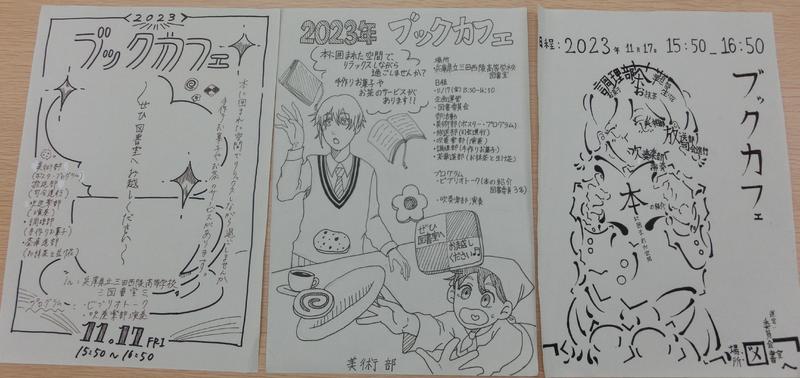 <2023>
ブックカフェ
本に囲まれた空間でリラックスしながら過ごしませんか
手作りお菓子やお茶のサービスがあります!
〜ぜひ図書室へお越しください〜
美術部
(ポスター・プログラム)
放送部
(司会進行)
吹奏楽部
(演奏)
・調理部
(手作りお菓子)
・茶華道部
(お抹茶と生け花)
in:兵庫県立三田西陵高等学校
図書室
プログラム:
・ビブリオトーク
・吹奏楽部演奏
11.17 FRI
15:50〜16:50
2023年 ブックカフェ
本に囲まれた空間で、
リラックスしながら
過ごしませんか?
手作りお菓子や
お茶のサービスが
あります!!
場所
・兵庫県立三田西陵高等学校
図書室
日程
・11/17(金)15:50-16:50
企画運営
・図書委員会
部活動
・美術部(ポスター・プログラム)
・放送部(司会進行)
・吹奏楽部(演奏)
・調理部(手作りお菓子)
・茶華道部(お抹茶と生け花)
プログラム
・ビブリオトーク(本の紹介
図書委員3年)
・吹奏楽部演奏
ぜひ
図書室へ
お越し
ください♪
美術部
日程:2023年11月17日 15:50_16:50
ブックカフェ
調理部
お抹茶
放送部
司会進行
吹奏楽部
演奏
本
の紹介
に囲まれた空間
場所: